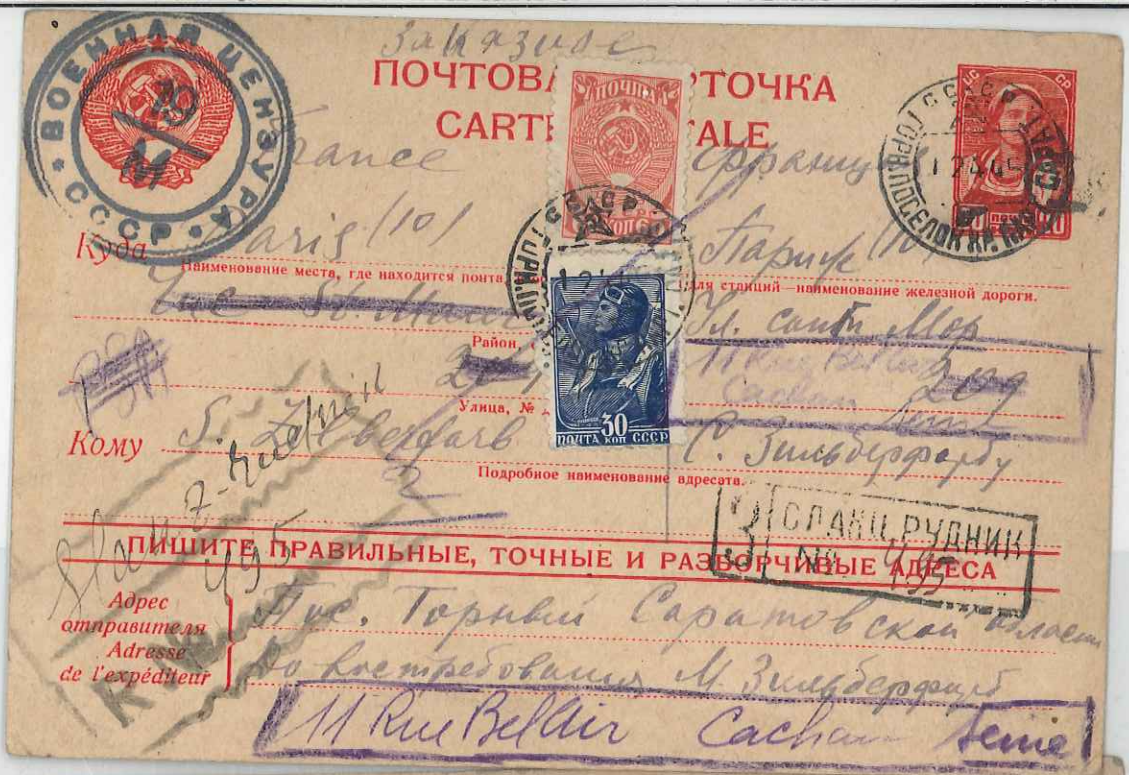 ВОЕННАЯ ЦЕНЗУРА
СССР
Заказное
ПОЧТОВА РТОЧКА
CARTE ALE
France Франция
ПОЧТА
60 КОП
Куда Paris (10) Париж (10)
Наименование места, где находится почта, для станций—наименование железной дороги.
Rue St. Maur Ул. сант Мор
Район,
209 11 Rue Bellvir 209
Cachan
Seine
Улица, №
30
ПОЧТА КОП СССР
Кому S. Zilberfarb С. Зильберфарбу
Подробное наименование адресата.
З СЛАНЦ. РУДНИК
№ 495
ПИШИТЕ ПРАВИЛЬНЫЕ, ТОЧНЫЕ И РАЗБОРЧИВЫЕ АДРЕСА
495
Адрес отправителя
Adresse de l'expéditeur
Пос. Горный Саратовской области
до востребования М. Зильберфарб
11 Rue Bellvir Cachan Seine